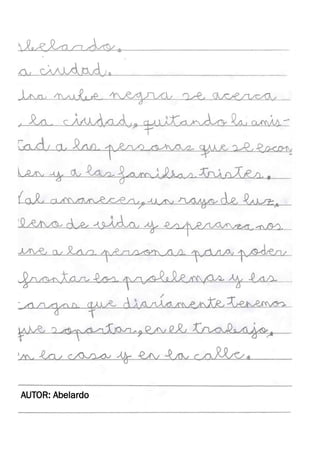 belardo.
a ciudad.
na nube negra se acerca
la ciudad, quitando la amis-
tad a las personas que se escon,
en y a las familias tristes.
al amanecer, un rayo de luz,
leno de vida y esperanza nos
ne a las personas para poder
frontar los problemas y las
cargas que diaríamente tenemos
que soportar, en el trabajo,
n la casa y en la calle.
AUTOR: Abelardo